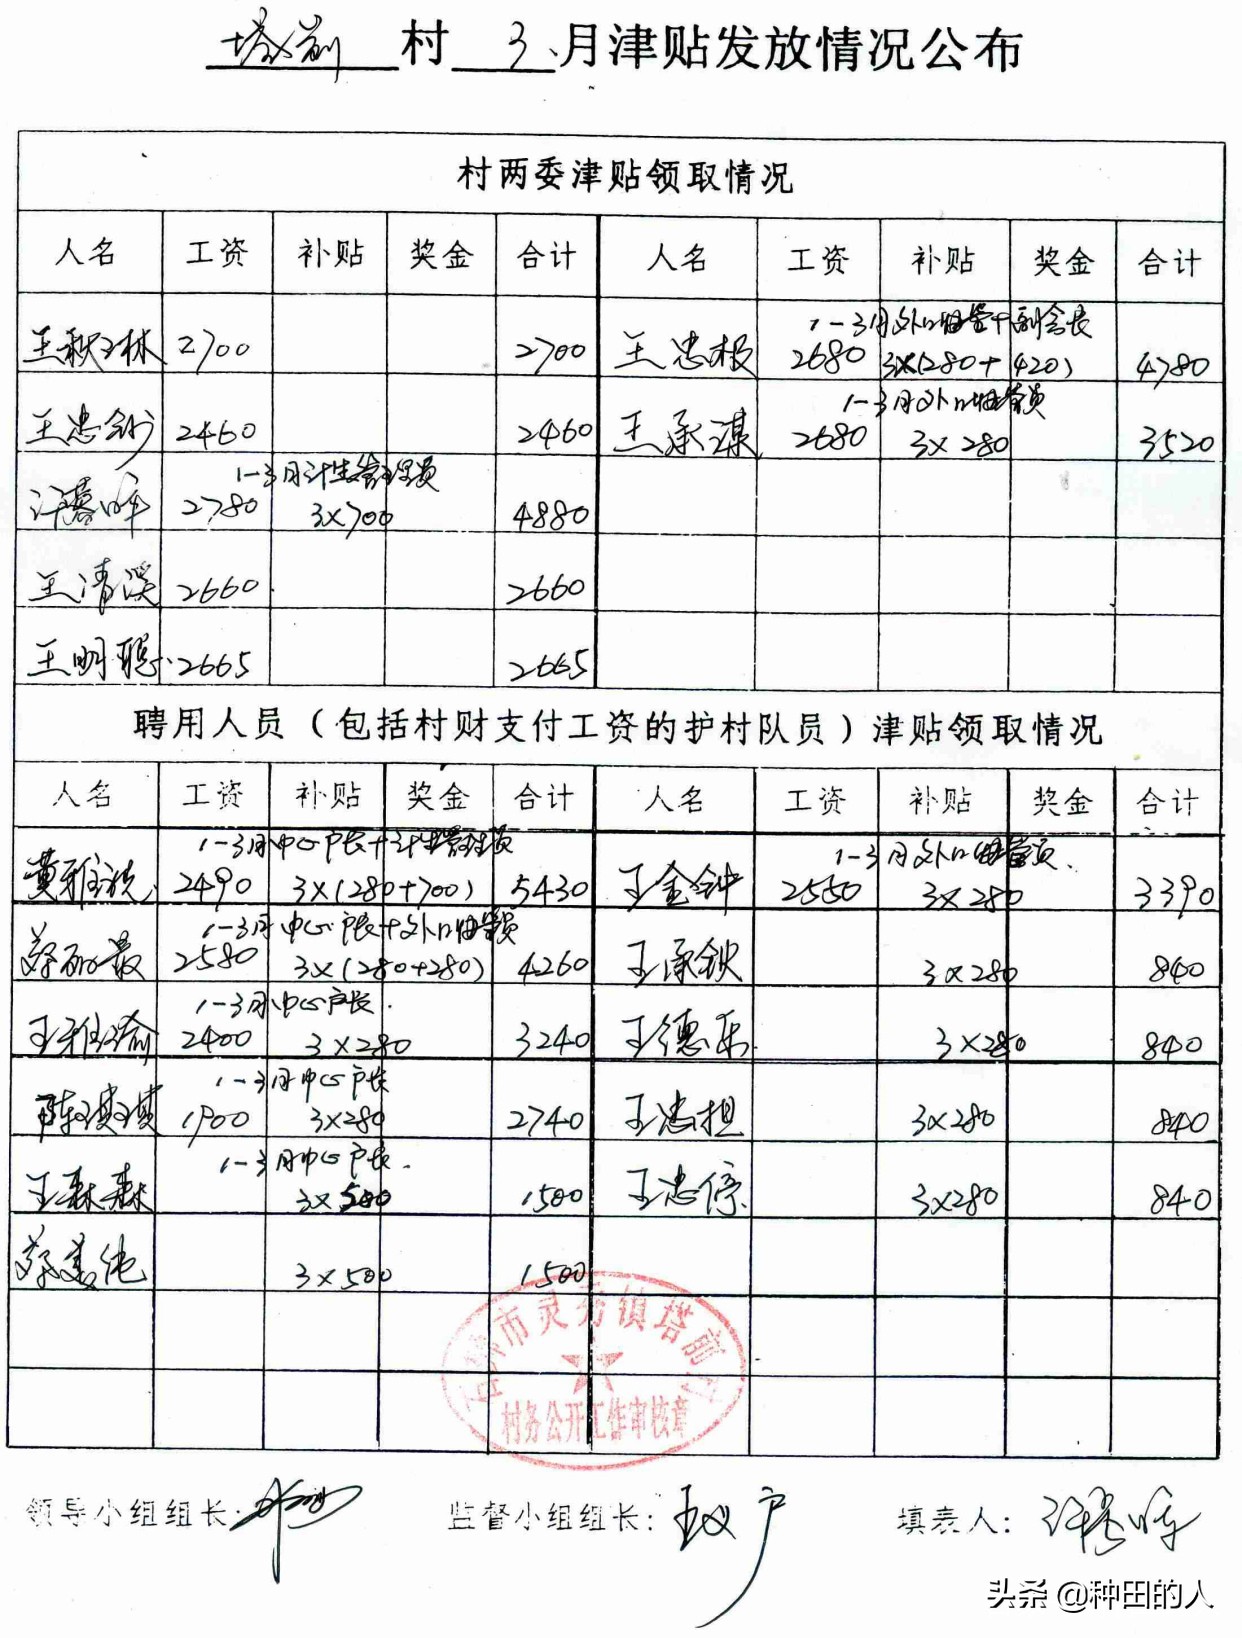 塔前 村 3 月津贴发放情况公布
村两委津贴领取情况
人名 工资 补贴 奖金 合计 人名 工资 补贴 奖金 合计
1-3月外口协管+副会长
王秋林 2700 2700 王忠报 2680 3×(280+420) 4780
1-3月外口协管员
王忠钞 2460 2460 王承谋 2680 3×280 3520
1-3月计生管理员
许蓉晖 2780 3×700 4880
王清溪 2660 2660
王明聪 2665 2665
聘用人员（包括村财支付工资的护村队员）津贴领取情况
人名 工资 补贴 奖金 合计 人名 工资 补贴 奖金 合计
1-3月中心户长+计生管理员 1-3月外口协管员
黄雅 2490 3×(280+700) 5430 王金钟 2550 3×280 3390
1-3月中心户长+外口协管员
蔡 最 2580 3×(280+280) 4260 王承钦 3×280 840
1-3月中心户长
王雅瑜 2400 3×280 3240 王德乐 3×280 840
1-3月中心户长
陈琪琪 1900 3×280 2740 王忠担 3×280 840
1-3月中心户长
王森森 3×500 1500 王忠停 3×280 840
蔡美纯 3×500 1500
石狮市灵秀镇塔前村
村务公开工作审核章
领导小组组长: 监督小组组长: 王 填表人: 许蓉晖
头条 @种田的人